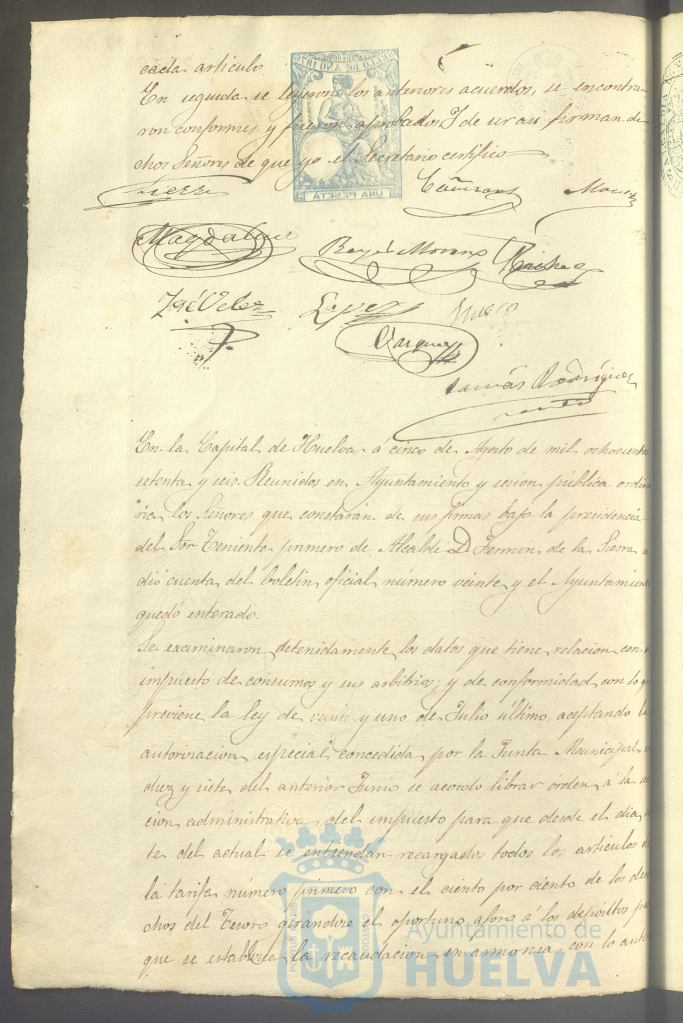 cada articulo
En seguida se leyeron los anteriores acuerdos, se encontra
ron conformes y fueron aprobados Y de ser asi firman di
chos Señores de que yo el Secretario certifico
Sierra
Magdalena
José Velez
Lopez
Vazquez
Tomás Rodriguez
En la Capital de Huelva á cinco de Agosto de mil ochociento
setenta y seis. Reunidos en Ayuntamiento y sesion pública ordin
ria los Señores que constarán de sus firmas bajo la presidencia
del Sor Teniente primero de Alcalde D. Fermin de la Sierra
dió cuenta del boletin oficial número veinte y el Ayuntamien
quedó enterado.
Se examinaron detenidamente los datos que tiene relacion con
impuesto de consumos y sus arbitrios; y de conformidad con lo q
previene la ley de veinte y uno de Julio último, aceptando l
autorizacion especial concedida por la Junta Municipal
diez y siete del anterior Junio se acordó librar órden á la
cion administrativa del impuesto para que desde el dia
te del actual se entiendan recargados todos los articulos d
la tarifa número primero con el ciento por ciento de los dere
chos del Tesoro girandose el oportuno aforo á los depositos pa
que se establezca la recaudacion en armonia con lo ante
UNA PESETA
Ayuntamiento de
HUELVA